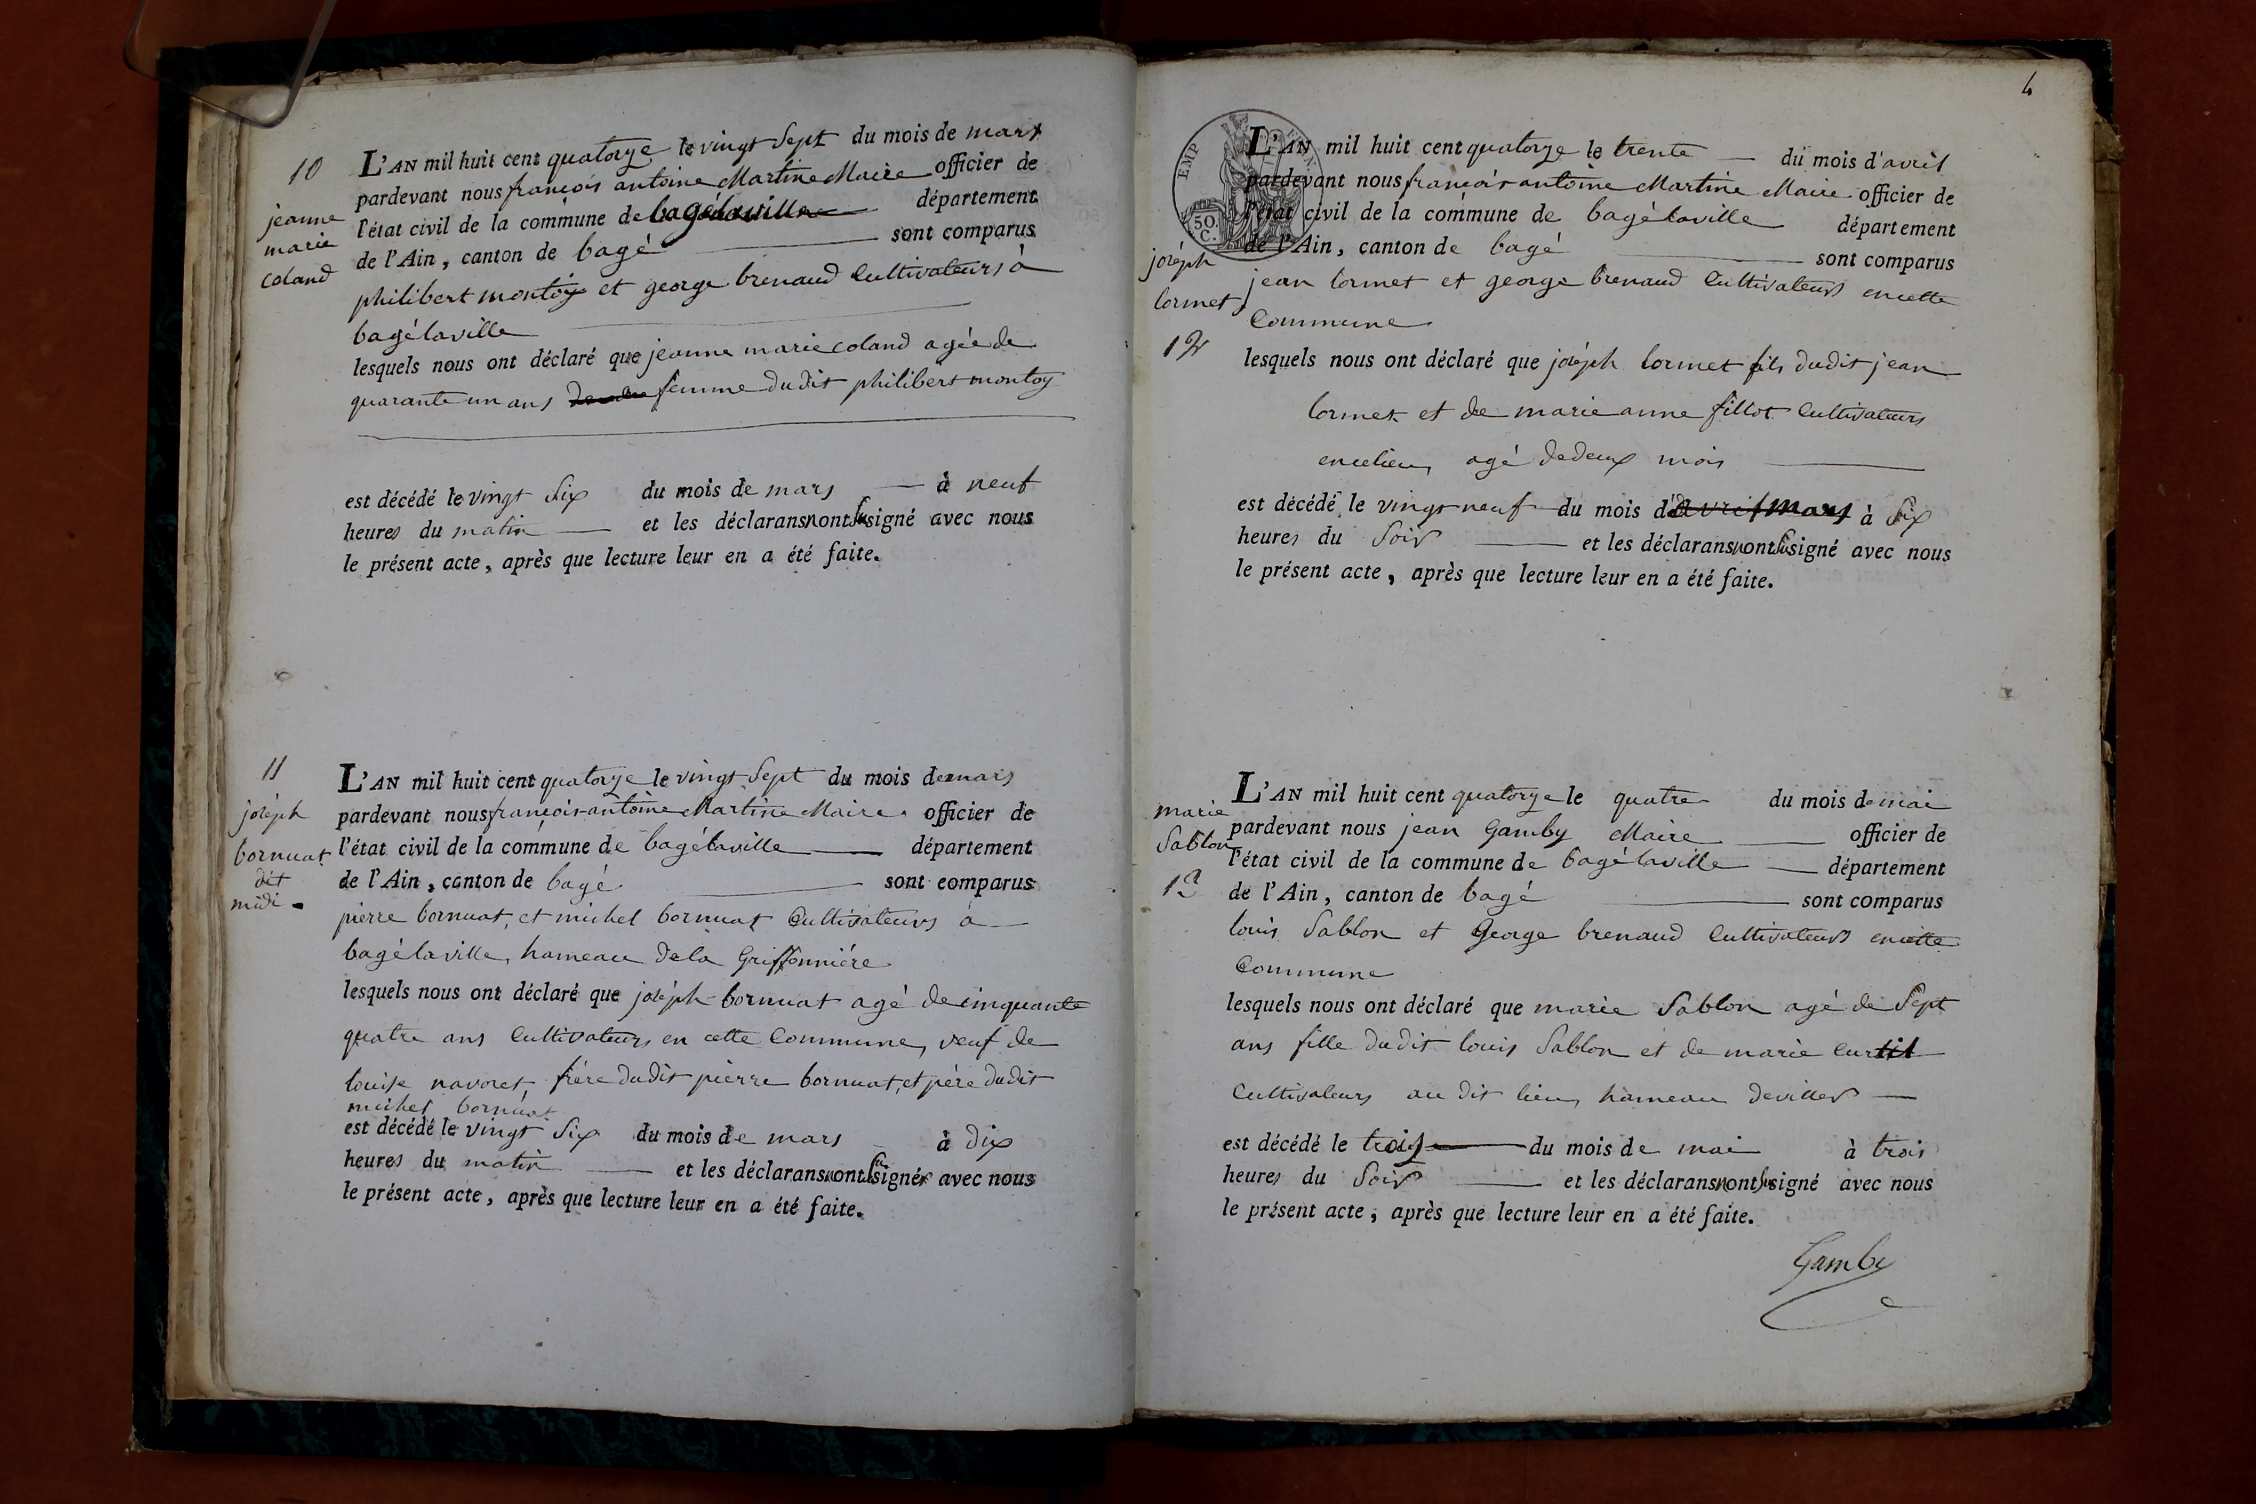 10
jeanne
marie
coland
L'AN mil huit cent quatorze le vingt Sept du mois de mars
pardevant nous françois antoine Martine Maire officier de
l'état civil de la commune de bagélaville département
de l'Ain, canton de bagé sont comparus
philibert montoy et george brenaud Cultivateurs à
bagélaville
lesquels nous ont déclaré que jeanne marie coland agée de
quarante un ans femme dudit philibert montoy
est décédé le vingt Six du mois de mars à neuf
heures du matin et les déclarans nont su signé avec nous
le présent acte, après que lecture leur en a été faite.
11
joséph
bornuat
dit
midi
L'AN mil huit cent quatorze le vingt Sept du mois de mars
pardevant nous françois-antoine Martine Maire officier de
l'état civil de la commune de bagélaville département
de l'Ain, canton de bagé sont comparus
pierre bornuat, et michel bornuat Cultivateurs à
bagélaville, hameau de la Griffonniére
lesquels nous ont déclaré que joséph bornuat agé de cinquante
quatre ans Cultivateurs en cette Commune, veuf de
louise navoret, frére dudit pierre bornuat, et pére dudit
michel bornuat
est décédé le vingt Six du mois de mars à dix
heures du matin et les déclarans nont su signé avec nous
le présent acte, après que lecture leur en a été faite.
4
EMP
50
C.
joséph
lormet
12
L'AN mil huit cent quatorze le trente du mois d'avril
pardevant nous françois antoine Martine Maire officier de
l'état civil de la commune de bagélaville département
de l'Ain, canton de bagé sont comparus
jean lormet et george brenaud Cultivateurs en cette
Commune
lesquels nous ont déclaré que joséph lormet fils dudit jean
lormet et de marie anne fillot Cultivateurs
en ce lieu, agé de deux mois
est décédé le vingt neuf du mois d'avril mars à Six
heures du Soir et les déclarans nont su signé avec nous
le présent acte, après que lecture leur en a été faite.
marie
Sablon
13
L'AN mil huit cent quatorze le quatre du mois de mai
pardevant nous jean Gamby Maire officier de
l'état civil de la commune de bagélaville département
de l'Ain, canton de bagé sont comparus
louis Sablon et George brenaud Cultivateurs en cette
Commune
lesquels nous ont déclaré que marie Sablon agé de Sept
ans fille dudit louis Sablon et de marie Curtil
Cultivateurs au dit lieu, hameau de
est décédé le trois du mois de mai à trois
heures du Soir et les déclarans nont su signé avec nous
le présent acte, après que lecture leur en a été faite.
Gamby